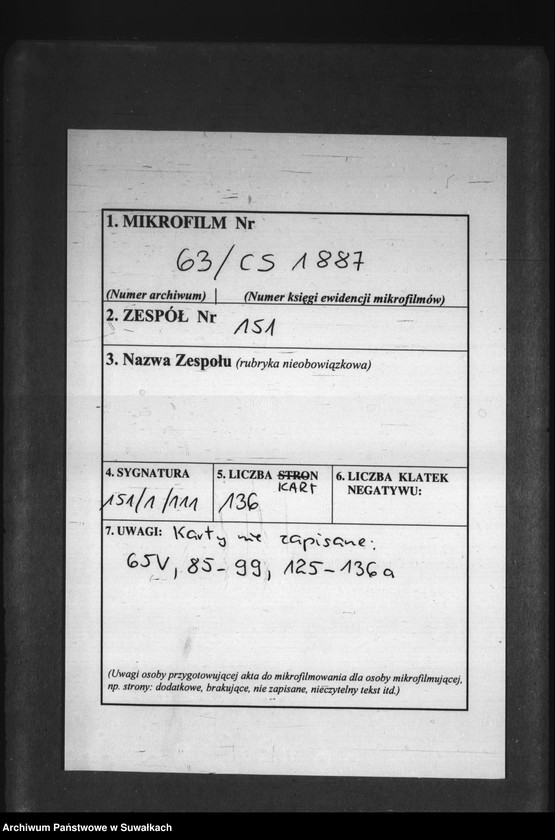 1. MIKROFILM Nr
63/CS 1887
(Numer archiwum) | (Numer księgi ewidencji mikrofilmów)
2. ZESPÓŁ Nr 151
3. Nazwa Zespołu (rubryka nieobowiązkowa)
4. SYGNATURA
151/1/111
5. LICZBA STRON
KART
136
6. LICZBA KLATEK
NEGATYWU:
7. UWAGI: Karty nie zapisane:
65V, 85-99, 125-136a
(Uwagi osoby przygotowującej akta do mikrofilmowania dla osoby mikrofilmującej,
np. strony: dodatkowe, brakujące, nie zapisane, nieczytelny tekst itd.)
Archiwum Państwowe w Suwałkach